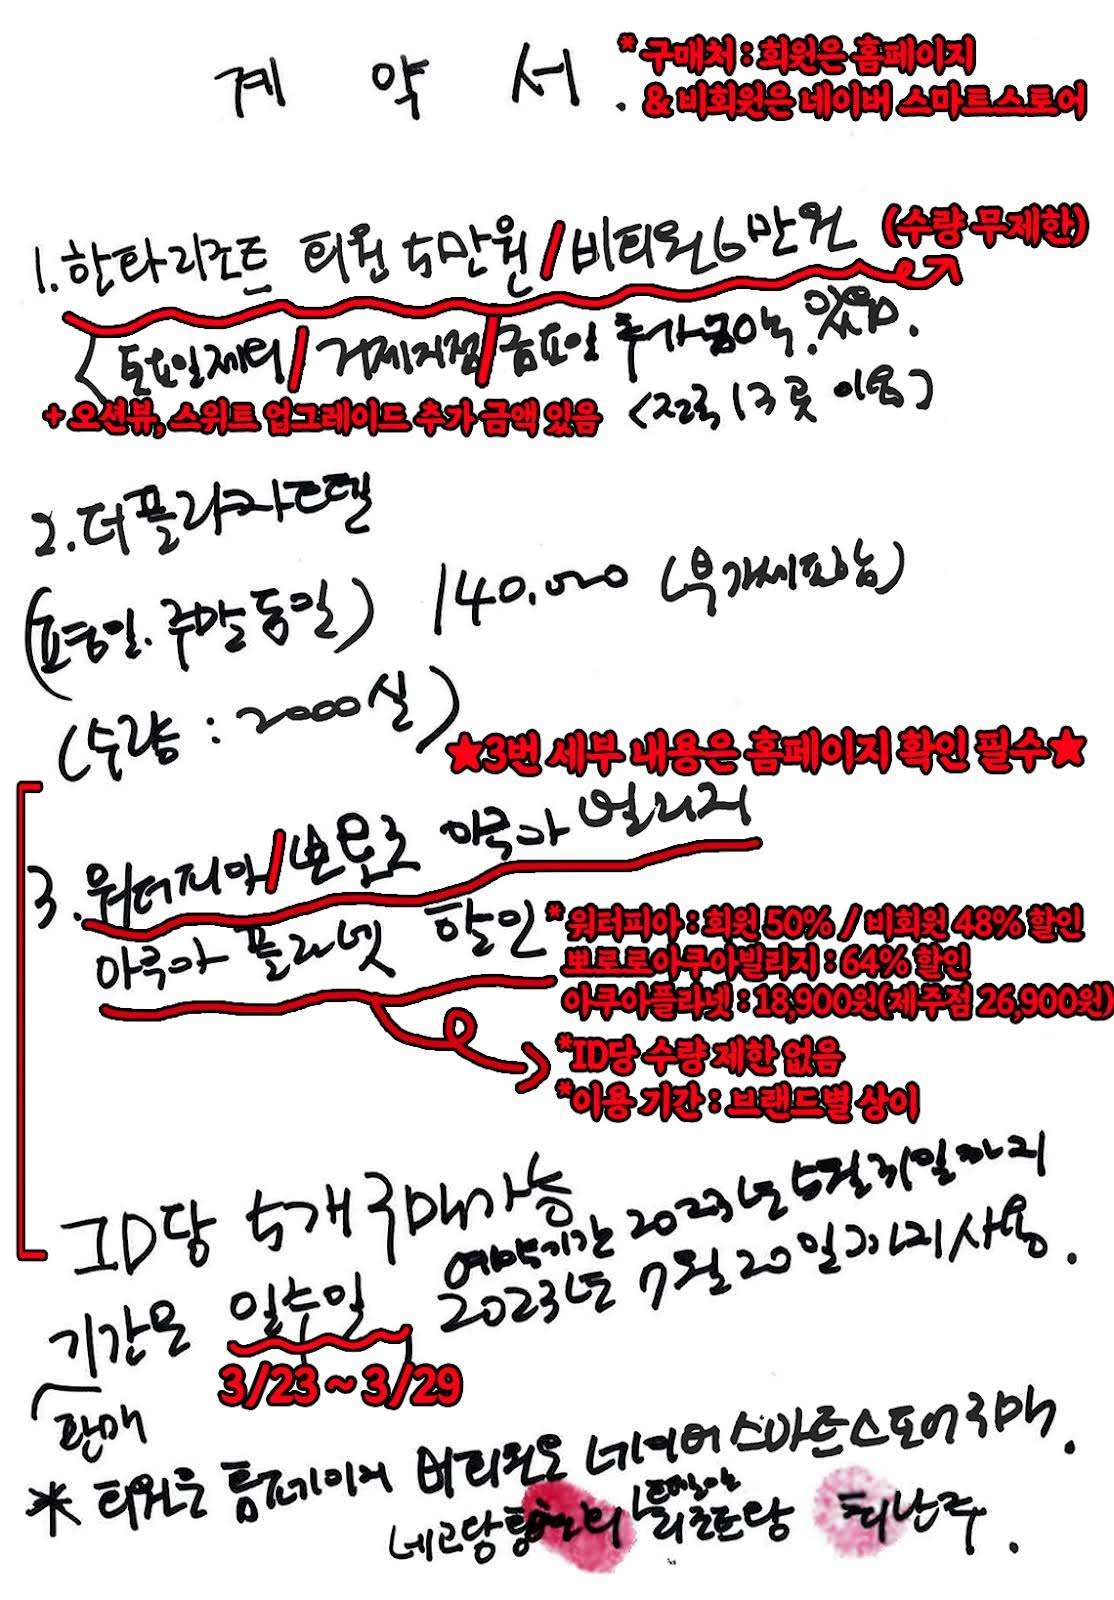 계 약 서.
* 구매처 : 회원은 홈페이지
& 비회원은 네이버 스마트스토어
1. 한화리조트 회원 5만원 / 비회원 6만원 (수량 무제한)
(토요일제외 / 거제지점 / 금요일 추가금액 있음.
+ 오션뷰, 스위트 업그레이드 추가 금액 있음
<전국 13곳 이용>
2. 더플라자호텔
(평일. 주말 동일) 140,000 (부가세포함)
(수량 : 2000실)
★3번 세부 내용은 홈페이지 확인 필수★
3. 워터피아 / 뽀로로 아쿠아 빌리지
아쿠아 플라넷 할인
* 워터피아 : 회원 50% / 비회원 48% 할인
뽀로로아쿠아빌리지 : 64% 할인
아쿠아플라넷 : 18,900원(제주점 26,900원)
*ID당 수량 제한 없음
*이용 기간 : 브랜드별 상이
ID당 5개 구매가능
예약기간 2023년 5월 31일까지
2023년 7월 20일까지 사용.
기간은 일주일
3/23 ~ 3/29
판매
* 회원은 홈페이지 비회원은 네이버 스마트스토어 구매.
네고왕 리조트 담당